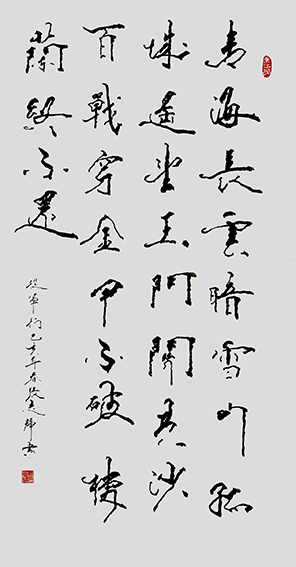 青海長雲暗雪山孤
城遙望玉門關黃沙
百戰穿金甲不破樓
蘭終不還
從軍行己亥年春張書